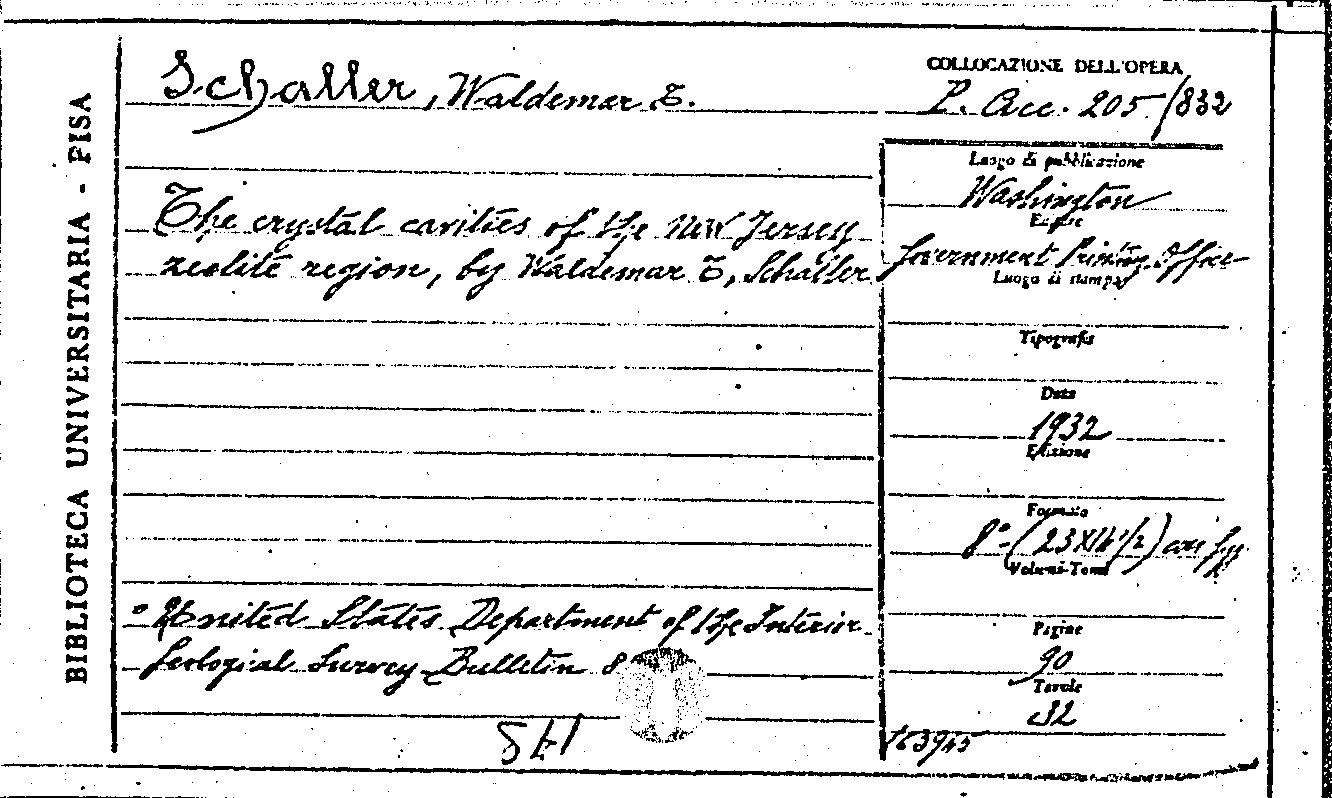 BIBLIOTECA UNIVERSITARIA - PISA
Schaller, Waldemar T.
COLLOCAZIONE DELL'OPERA
P. Acc. 205/832
The crystal cavities of the New Jersey
zeolite region, by Waldemar T, Schaller
Luogo di pubblicazione
Washington
Editore
Government Printing Office
Luogo di stampa
Tipografia
Data
1932
Edizione
Formato
8°-(23X14 1/2) con fgg.
Volumi-Tomi
Pagine
90
Tavole
32
163945
° United States Department of the Interior
Geological Survey Bulletin 8